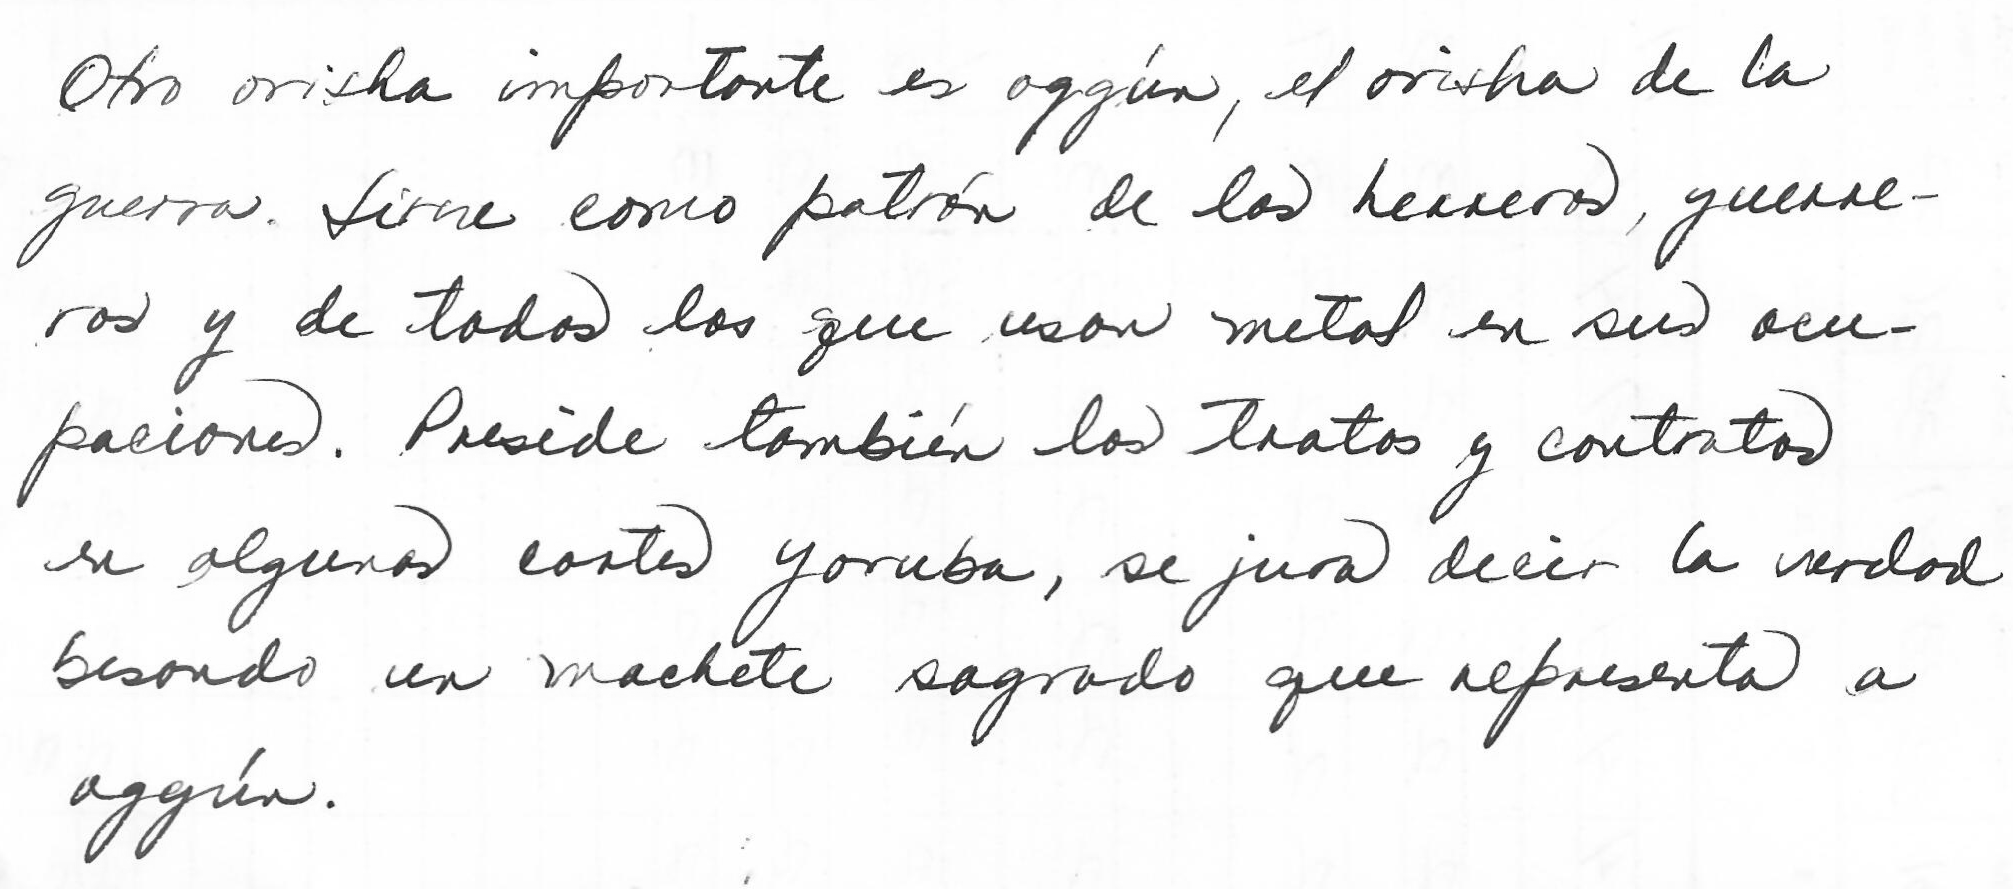 Otro orisha importante es oggún, el orisha de la
guerra. Sirve como patrón de los herreros, guerre-
ros y de todos los que usan metal en sus ocu-
paciones. Preside también los tratos y contratos
en algunas cortes Yoruba, se jura decir la verdad
besando un machete sagrado que representa a
oggún.